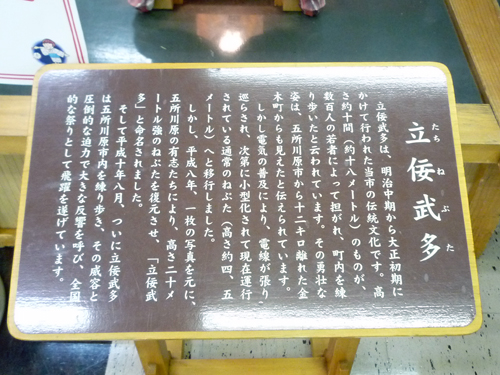 立佞武多
たちねぷた
立佞武多は、明治中期から大正初期に
かけて行われた当市の伝統文化です。高
さ約十間(約十八メートル)のものが、
数百人の若者によって担がれ、町内を練
り歩いたと言われています。その勇壮な
姿は、五所川原市から十二キロ離れた金
木町からも見えたと伝えられています。
しかし電気の普及により、電線が張り
巡らされ、次第に小型化されて現在運行
されている通常のねぷた(高さ約四、五
メートル)へと移行しました。
しかし、平成八年、一枚の写真を元に、
五所川原の有志たちにより、高さ二十メ
ートル強のねぷたを復元させ、「立佞武
多」と命名されました。
そして平成十年八月、ついに立佞武多
は五所川原市内を練り歩き、その威容と
圧倒的な迫力で大きな反響を呼び、全国
的な祭りとして飛躍を遂げています。